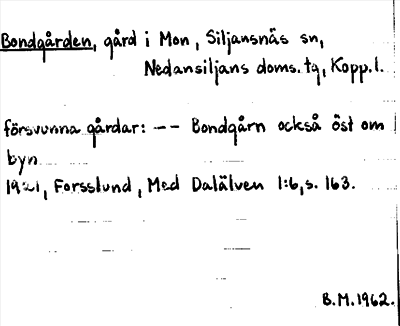 Bondgården, gård i Mon, Siljansnäs sn,
Nedansiljans doms. tg, Kopp. l.
försvunna gårdar: -- Bondgårn också öst om
byn
1921, Forsslund, Med Dalälven 1:6, s. 163.
B.M. 1962.